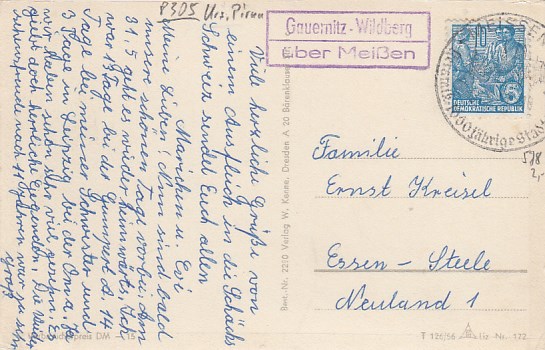 P305
Krs. Pirna
Gauernitz-Wildberg
über Meißen
MEISSEN
10
5
DEUTSCHE
DEMOKRATISCHE REPUBLIK
jährige Stadt
578
2,-
Viele herzliche Grüße von
einem Ausflug in die Sächs
Schweiz sendet Euch allen
Mariechen u. Evi
Meine Lieben! Nun sind bald
unsere schönen Tage vorbei. Am
31.5 geht es wieder heimwärts. Ich
war 19 Tage bei der Gumpert d. 14
Tage bei meiner Schwester und
3 Tage in Leipzig bei der Oma. Ja
wir haben schon sehr viel gesehen. Es
gibt doch herrliche Gegenden. Die Wied
sehensfreude nach 11 Jahren war ja sehr
groß
Best.-Nr. 2210 Verlag W. Kenne, Dresden A 20 Bärenklause
Familie
Ernst Kreisel
Essen - Steele
Neuland 1
preis DM -.15
T 126/56
Liz.-Nr. 172